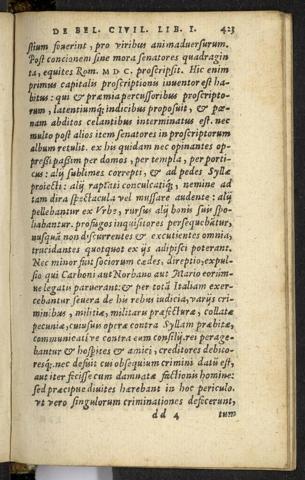 DE BEL. CIVIL. LIB. I. 423
stium fouerint, pro viribus animaduersurum.
Post concionem sine mora senatores quadragin
ta, equites Rom. MDC. proscripsit. Hic enim
primus capitalis proscriptionis inuentor est ha
bitus: qui & præmia percussoribus proscripto-
rum, latentiumq; indicibus proposuit, & pœ-
nam abditos celantibus interminatus est. nec
multo post alios item senatores in proscriptorum
album retulit. ex his quidam nec opinantes op-
pressi passim per domos, per templa, per porti-
cus: alij sublimes correpti, & ad pedes Syllæ
proiecti: alij raptati conculcatiq;, nemine ad
tam dira spectacula vel mussare audente: alij
pellebantur ex Vrbe, rursus alij bonis suis spo-
liabantur. profugos inquisitores persequebātur,
nusquā non discurrentes & excutientes omnia,
trucidantes quotquot ex ijs adipisci poterant.
Nec minor fuit sociorum cædes, direptio, expul-
sio qui Carboni aut Norbano aut Mario eorūm-
ue legatis paruerant: & per totā Italiam exer-
cebantur seuera de his rebus iudicia, varijs cri-
minibus, militiæ, militaris præfecturæ, collatæ
pecuniæ, cuiusuis operæ contra Syllam præbitæ,
communicati ve contra eum consilij. rei perage-
bantur & hospites & amici, creditores debito-
resq;. nec defuit cui obsequium crimini datū est,
aut iter fecisse cum damnatæ factionis homine:
sed præcipue diuites hærebant in hoc periculo.
vt vero singulorum criminationes defecerunt,
dd 4 tum